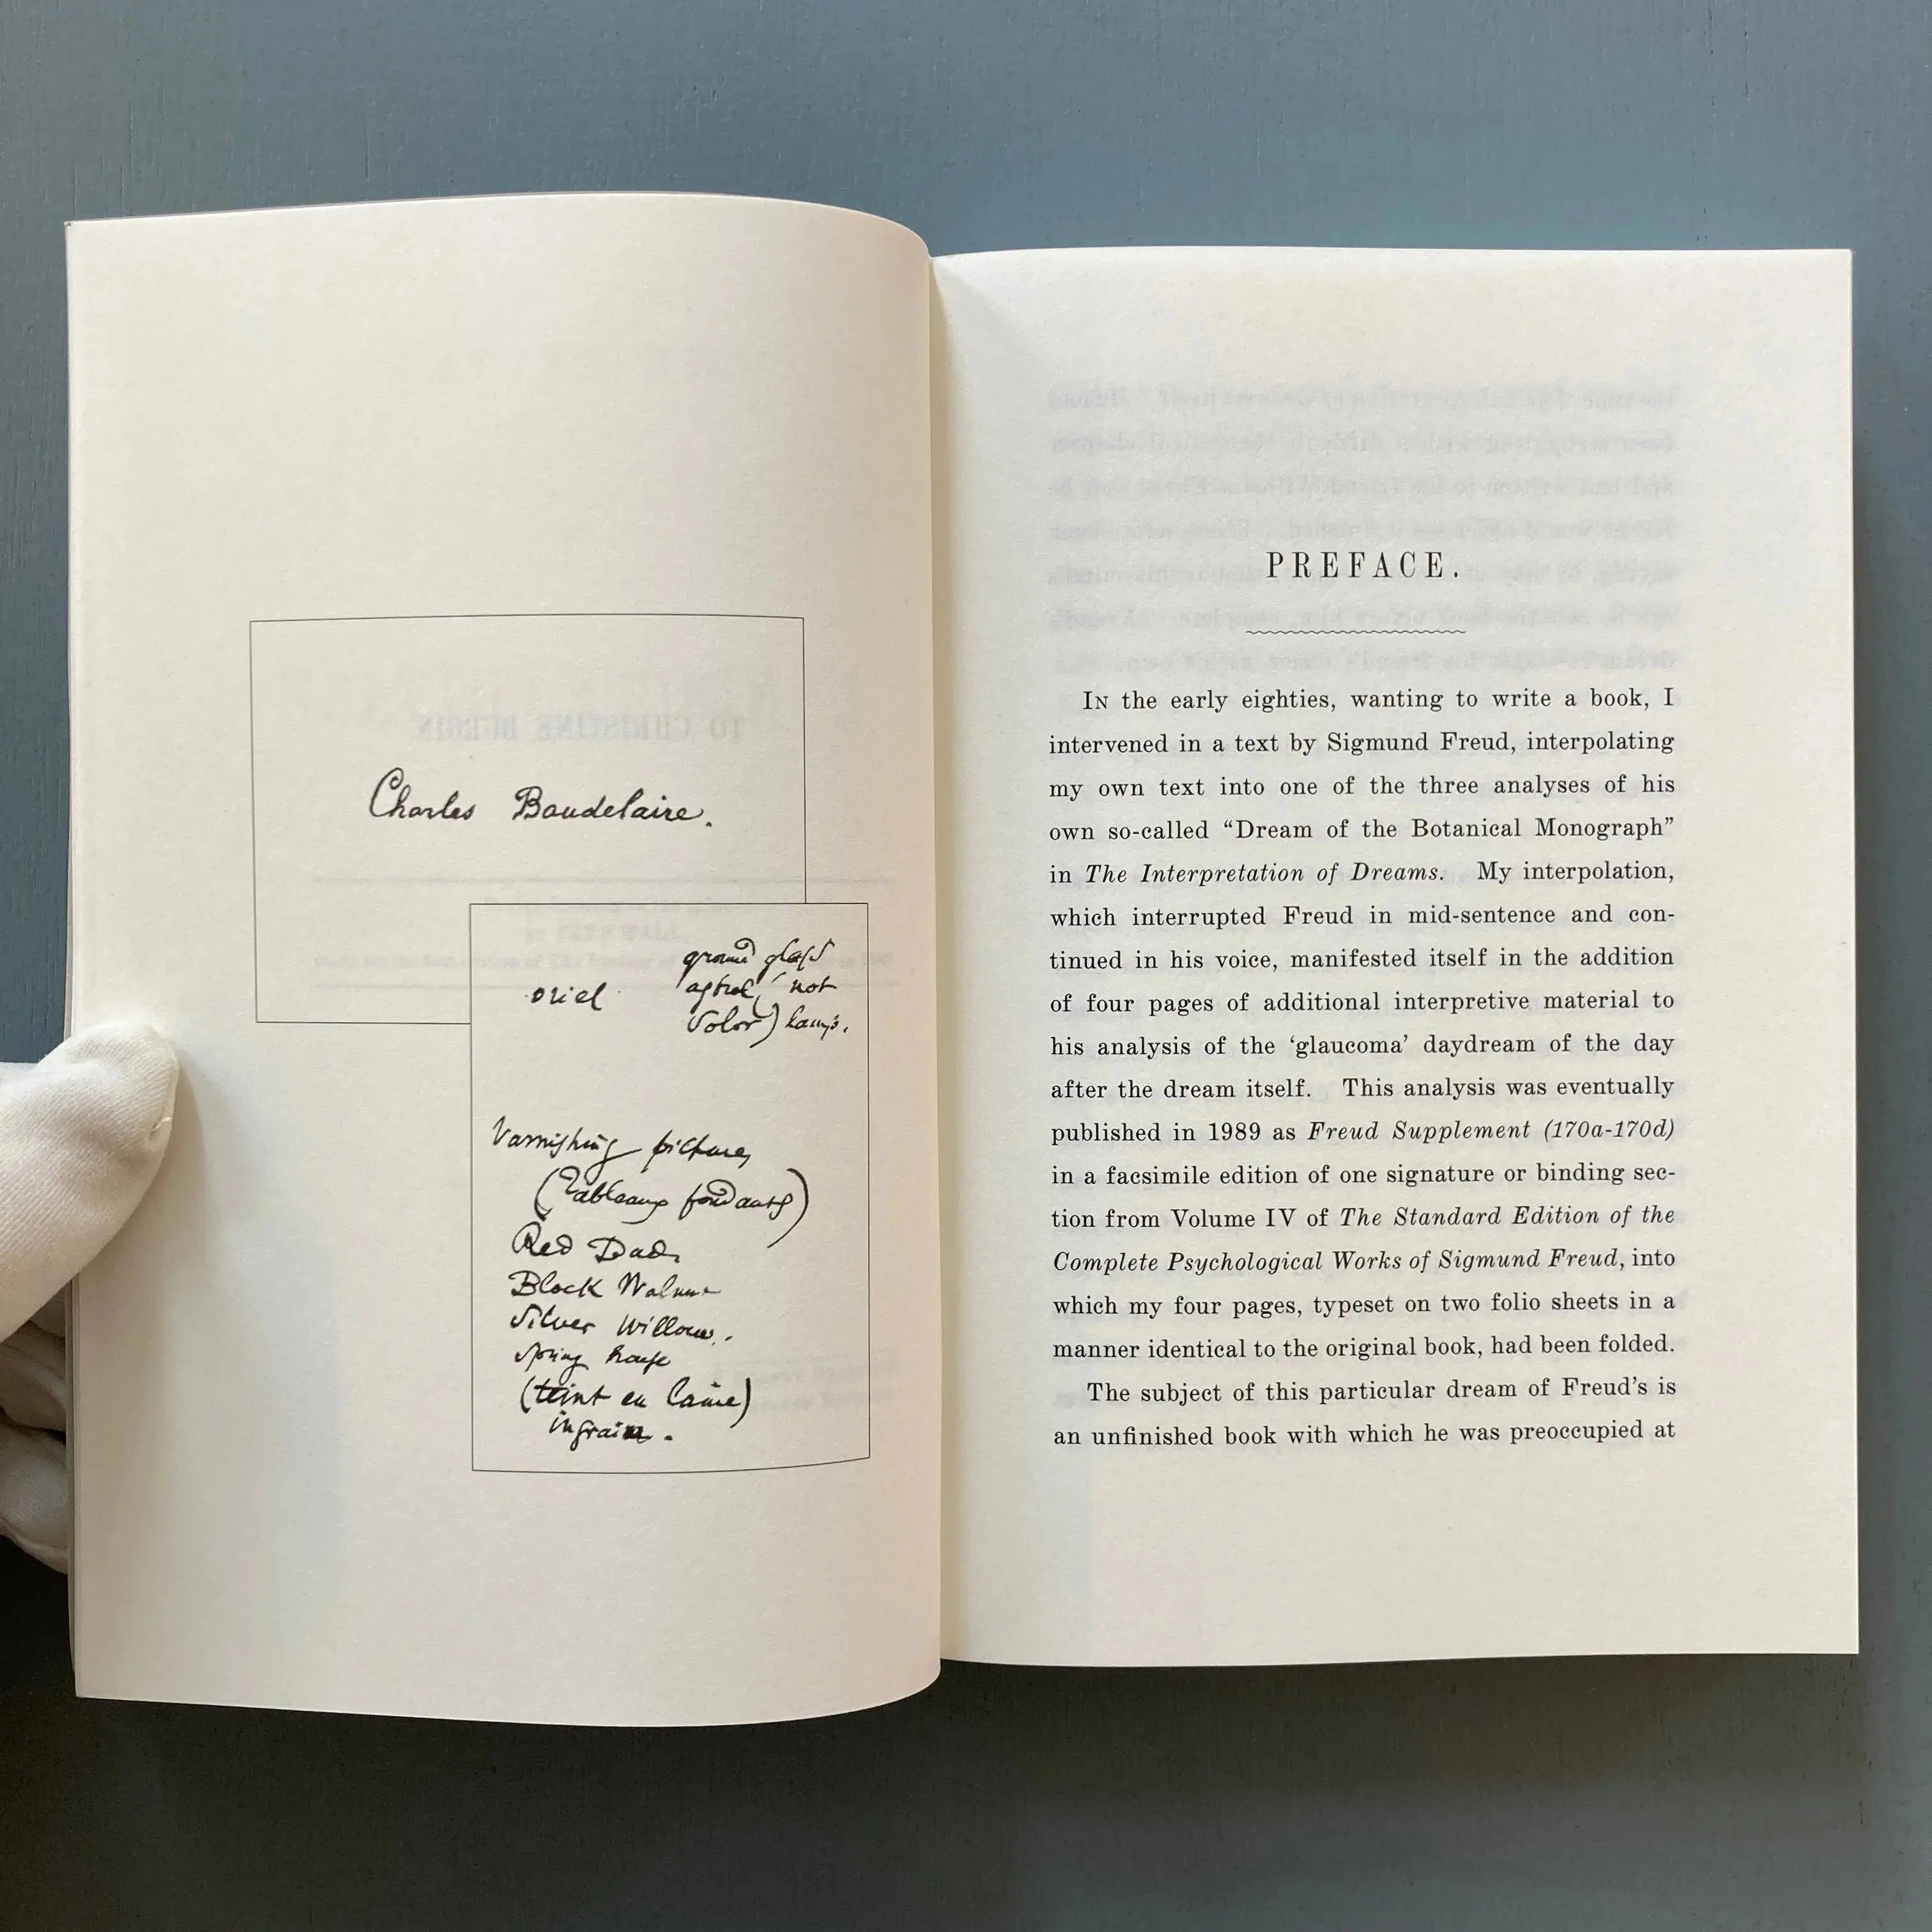 Charles Baudelaire.
oriel
ground glass
astral ( not
Solar) lamps.
Varnishing pictures
(Tableaux fondants)
Red Dad
Black Walnut
Silver Willow.
spring house
(teint en laine)
ingrain.
PREFACE.
IN the early eighties, wanting to write a book, I
intervened in a text by Sigmund Freud, interpolating
my own text into one of the three analyses of his
own so-called “Dream of the Botanical Monograph”
in The Interpretation of Dreams. My interpolation,
which interrupted Freud in mid-sentence and con-
tinued in his voice, manifested itself in the addition
of four pages of additional interpretive material to
his analysis of the ‘glaucoma’ daydream of the day
after the dream itself. This analysis was eventually
published in 1989 as Freud Supplement (170a-170d)
in a facsimile edition of one signature or binding sec-
tion from Volume IV of The Standard Edition of the
Complete Psychological Works of Sigmund Freud, into
which my four pages, typeset on two folio sheets in a
manner identical to the original book, had been folded.
The subject of this particular dream of Freud’s is
an unfinished book with which he was preoccupied at